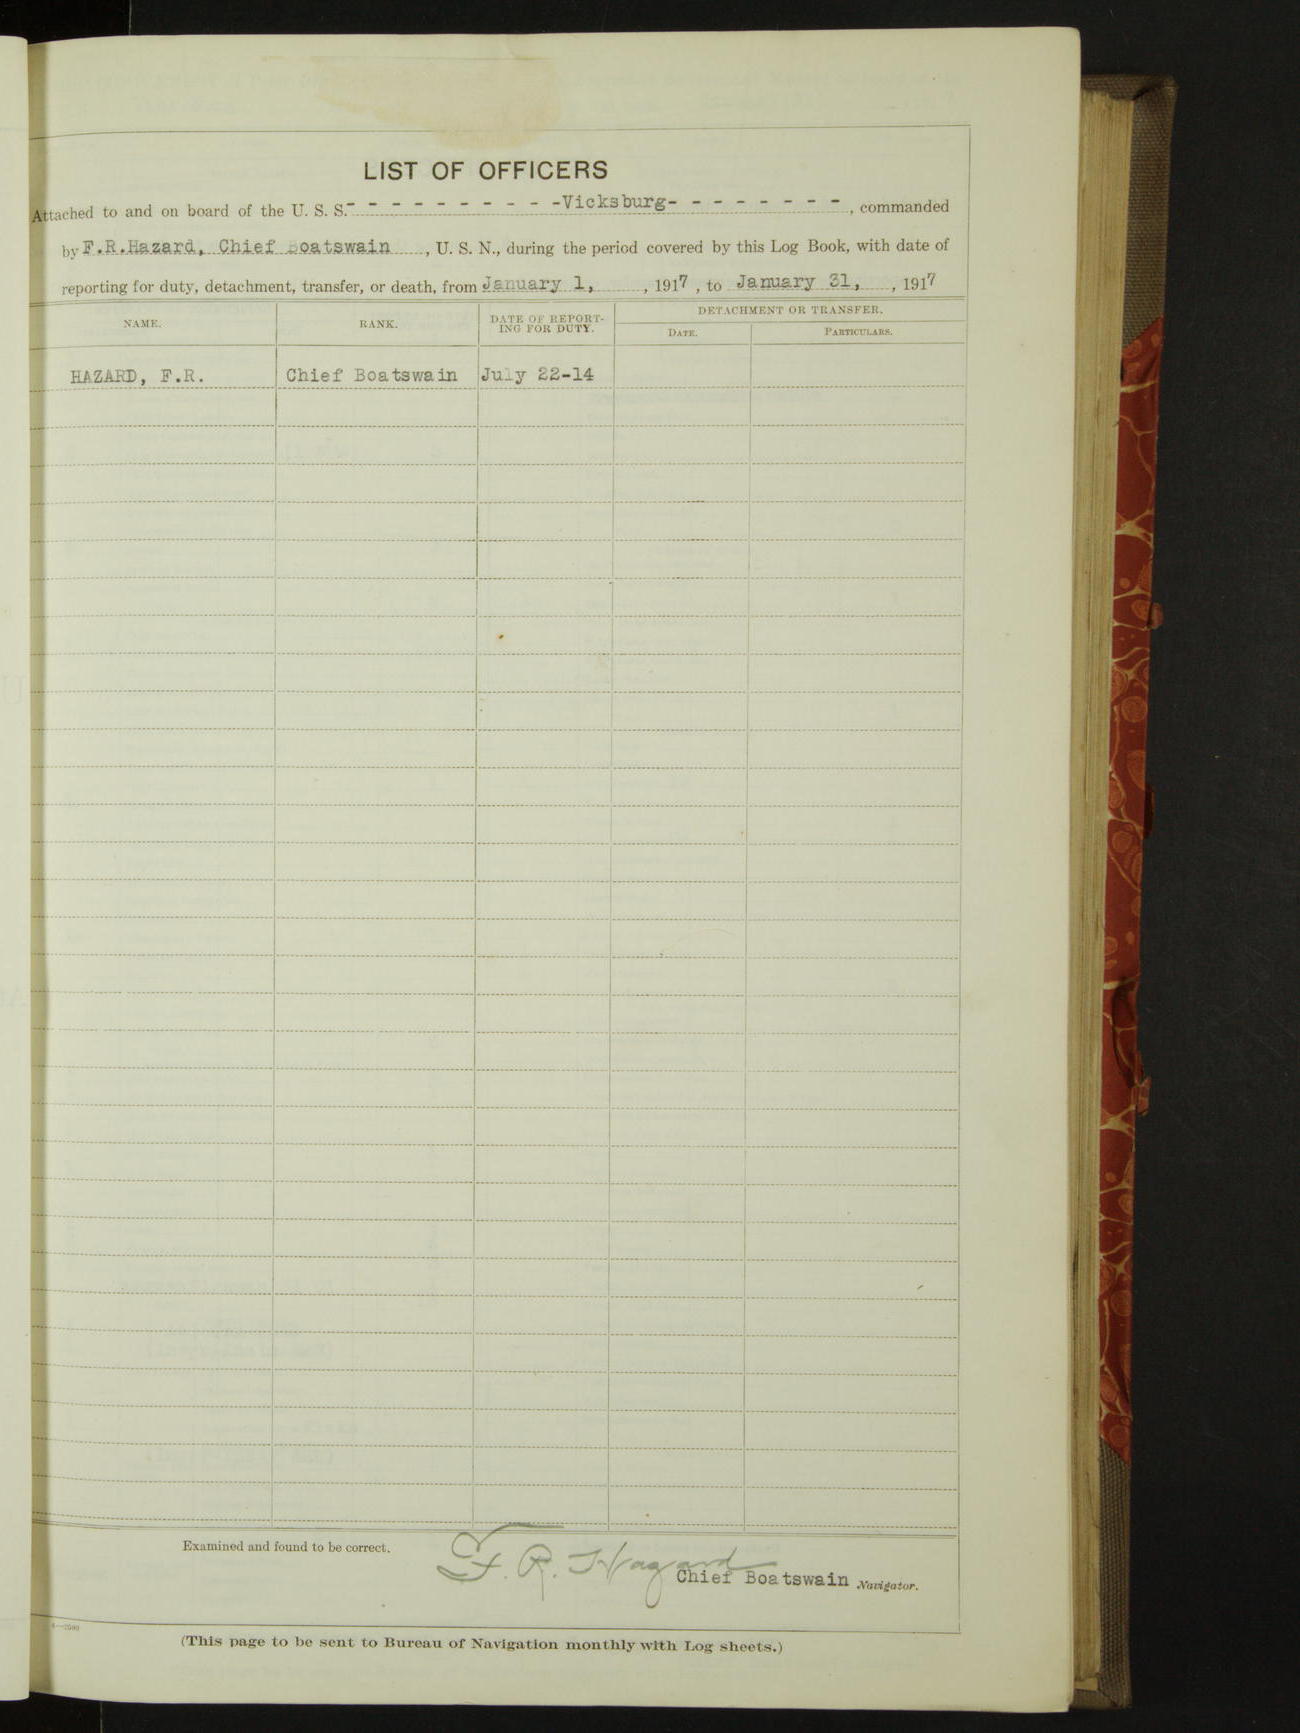 LIST OF OFFICERS
Attached to and on board of the U. S. S. - - - - - - - - - -Vicksburg- - - - - - - - -, commanded
by F.R.Hazard, Chief Boatswain, U. S. N., during the period covered by this Log Book, with date of
reporting for duty, detachment, transfer, or death, from January 1, , 1917 , to January 31, , 1917
NAME. RANK. DATE OF REPORT-ING FOR DUTY. DETACHMENT OR TRANSFER.
DATE. PARTICULARS.
HAZARD, F.R. Chief Boatswain July 22-14
Examined and found to be correct.
F. R. Hazard
Chief Boatswain Navigator.
(This page to be sent to Bureau of Navigation monthly with Log sheets.)